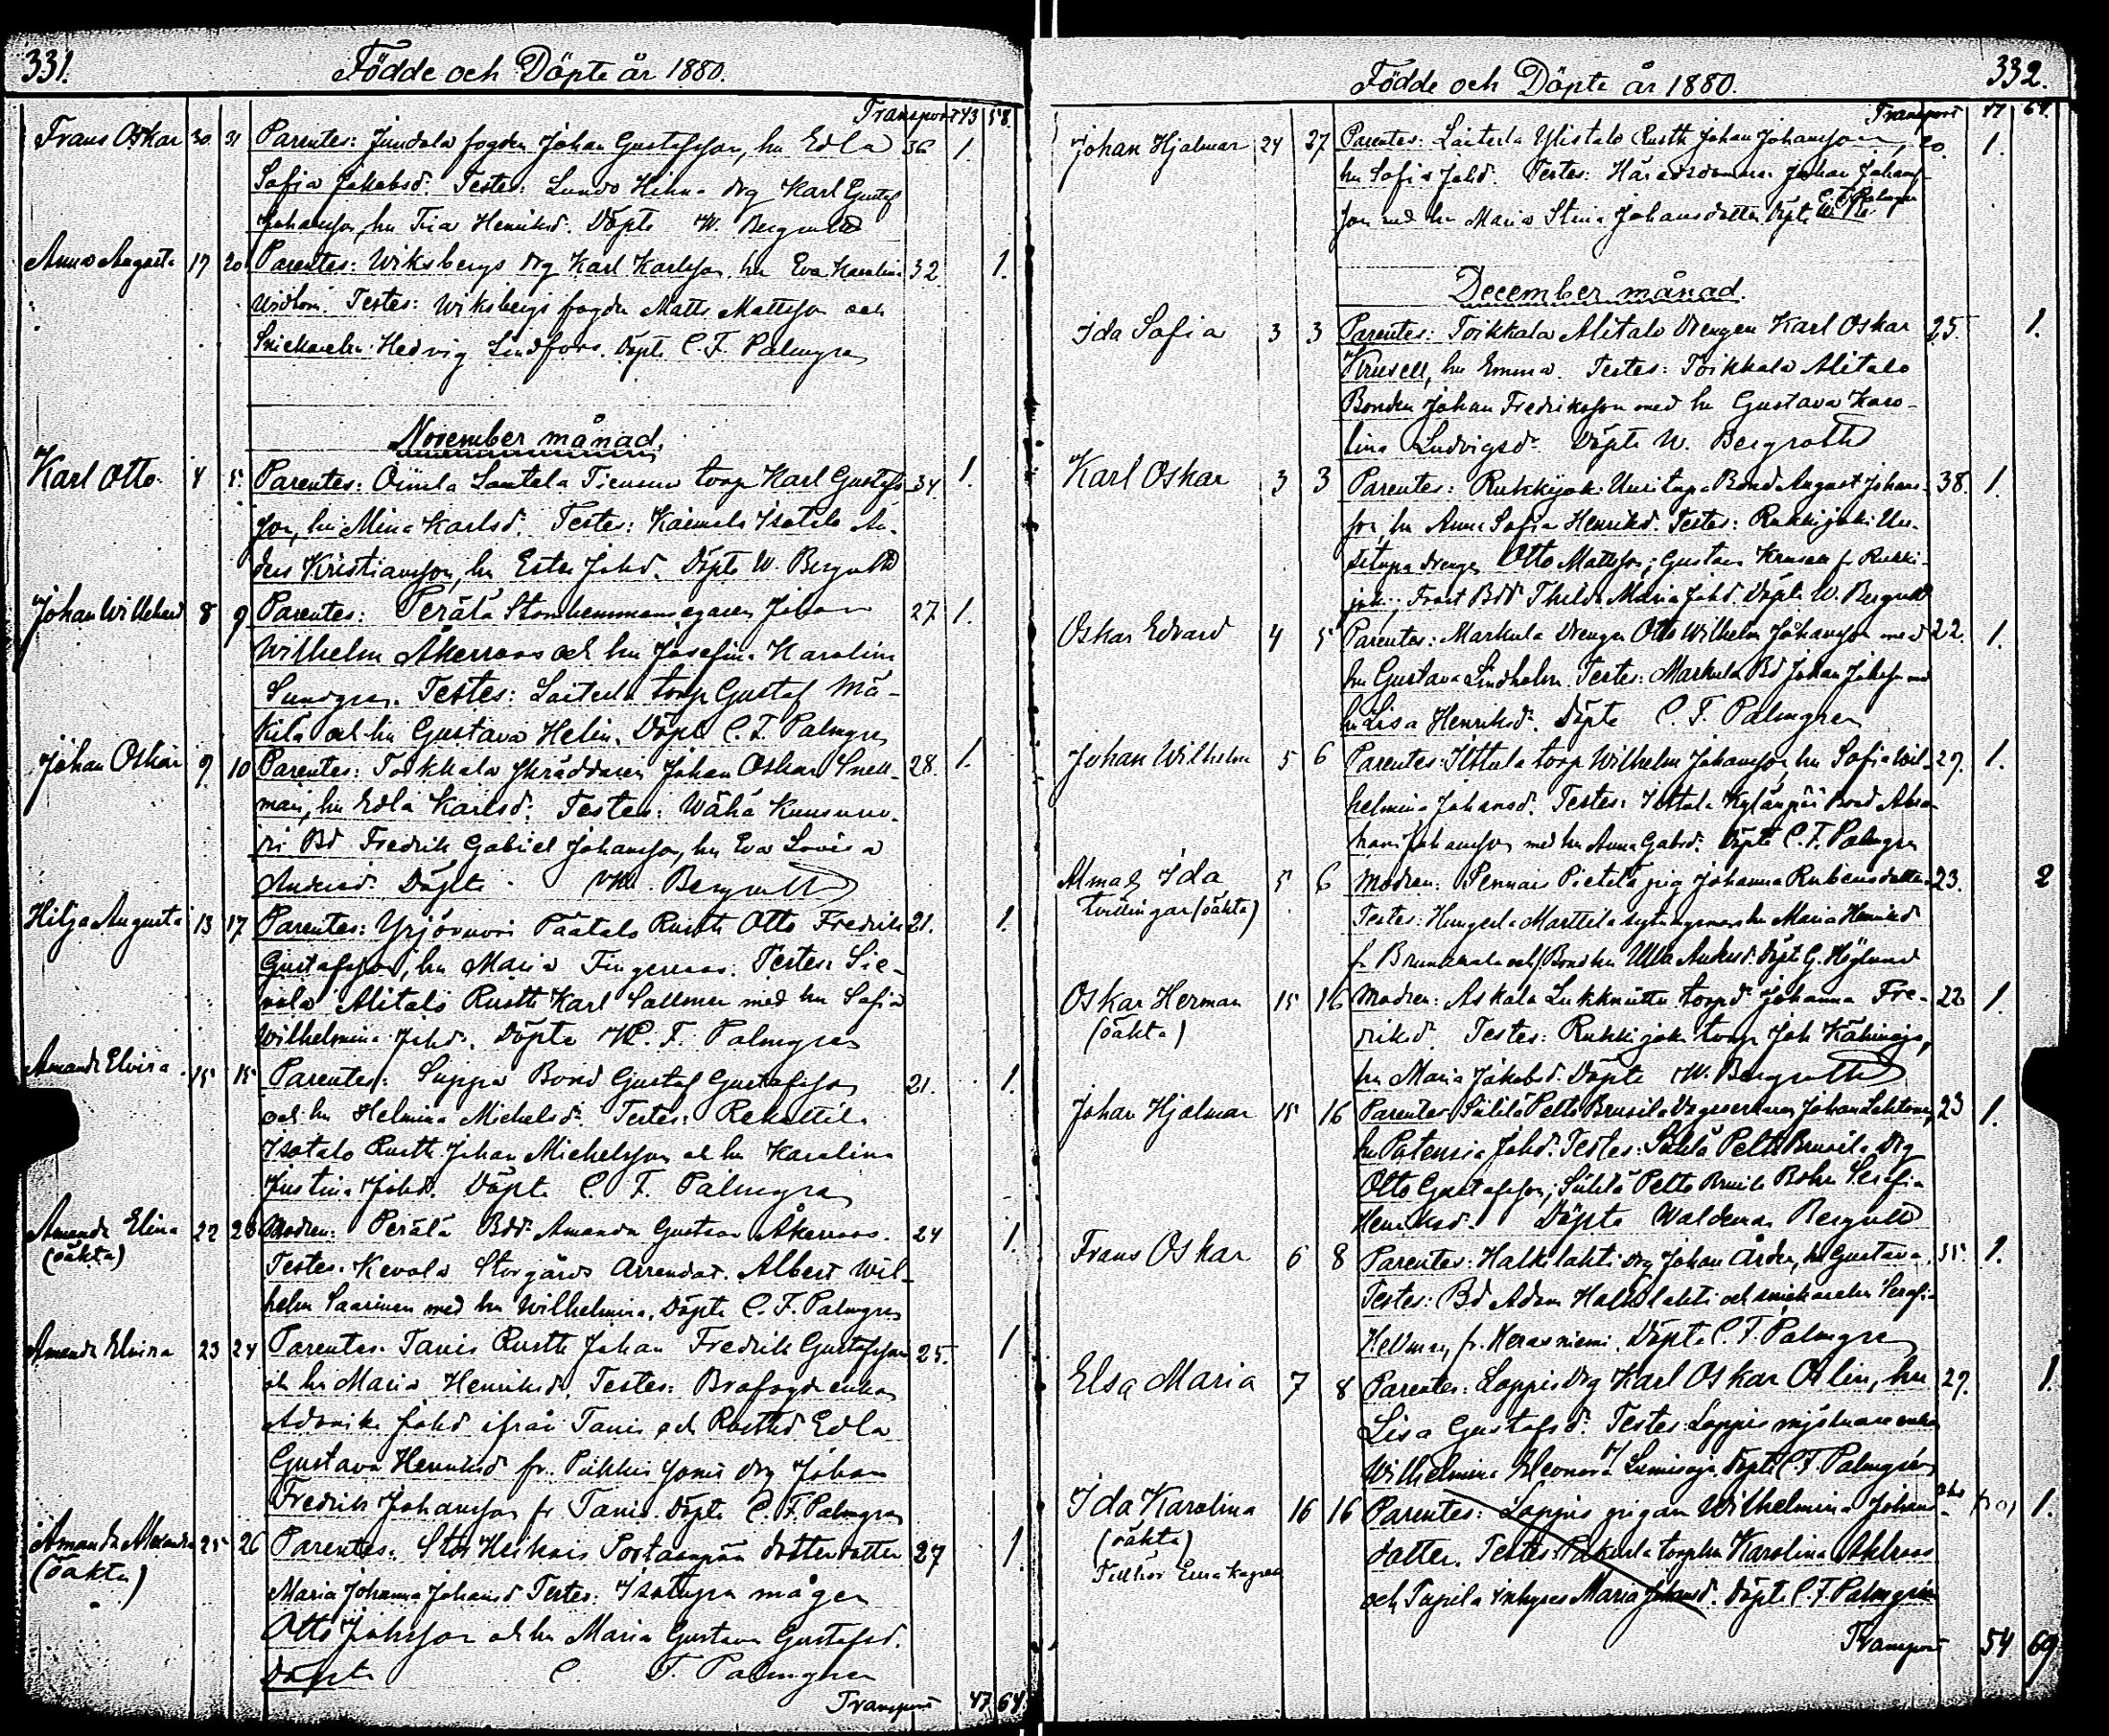 331.
Födde och Döpte år 1880.
Transport 43 58.
Frans Oskar 30. 31 Parentes: Jundola fogden Johan Gustafsson, hu Edla 36 1.
Sofia Jakobsd. Testes: drg Karl Gustaf
Johansson, hu Henriksd. Döpte W. Bergroth
Anna Augusta 17 20 Parentes: Wiksbergs drg Karl Karlsson hu Eva Karolina 32 1.
Testes: Wiksbergs fogden Matts Mattsson och
Snickarehu Hedvig Lindfors. Döpte C. F. Palmgren
November månad.
Karl Otto 4 5. Parentes: torp Karl Gustafs- 34 1.
son, hu Mina Karlsd. Testes: Isotalo An-
ders Kristiansson, hu Ester Johd. Döpte W. Bergroth
Johan Wilhelm 8 9 Parentes: Perälä Storhemmansegaren Johan 27 1.
Wilhelm Åkerroos och hu Josefina Karolina
Sundgren. Testes: Laiterla torp Gustaf Mä-
kilä och hu Gustava Helin. Döpte C. F. Palmgren
Johan Oskar 9 10 Parentes: Toikkala Skräddaren Johan Oskar Snell- 28. 1.
man, hu Edla Karlsd. Testes: Wähä Kuusuvu-
ri Bd Fredrik Gabriel Johansson, hu Eva Lovisa
Andersd. Döpte W. Bergroth
Hilja Augusta 13 17 Parentes: Yrjövuori Päätalo Rustth Otto Fredrik 21. 1.
Gustafsson, hu Maria Fingerroos. Testes: Sie-
vola Alitalo Rustth Karl Sallmen med hu Sofia
Wilhelmina Johd. Döpte C. F. Palmgren
Amanda Elvira 15 15 Parentes: Suppa Bond Gustaf Gustafsson 21. 1.
och hu Helmina Michelsd. Testes: Rekottila
Isotalo Rustth Johan Michelsson och hu Karolina
Justina Johd. Döpte C. F. Palmgren
Amanda Elina 22 23 Modren: Perälä Bdr Amanda Gustava Åkerroos. 24 1.
(oäkta)
Testes: Kevola Storgårds Arrendat. Albert Wil-
helm Saarinen med hu Wilhelmina. Döpte C. F. Palmgren
Amanda Elvira 23 24 Parentes: Tanis Rustth Johan Fredrik Gustafsson 25. 1
och hu Maria Henriksd. Testes: enkan
Johd ifrån Tanis och Edla
Gustava Henriksd fr. drg Johan
Fredrik Johansson fr Tanis. Döpte C. F. Palmgren
Amanda Alexandra 25 26 Parentes: Stor Heikois dotterdotter 27 1
(oäkta)
Maria Johanna Johansd Testes: Isotupa mågen
Otto Johsson och hu Maria Gustava Gustafsd.
Döpte C. F. Palmgren
Transport 47 64.
332.
Födde och Döpte år 1880.
Transport 47 64.
Johan Hjalmar 24 27 Parentes: Laiterla Ylistalo Rustth Johan Johansson, 20. 1.
hu Sofia Johd. Testes: Häradsdomaren Johan Johans-
son med hu Maria Stina Johansdotter. Döpte C. F. Palmgren
December månad.
Ida Sofia 3 3 Parentes: Toikkala Alitalo Drengen Karl Oskar 25. 1.
Krusell, hu Emma. Testes: Toikkala Alitalo
Bonden Johan Fredriksson med hu Gustava Karo-
lina Ludvigsd. Döpte W. Bergroth
Karl Oskar 3 3 Parentes: Rukkijoki Uusitupa Bond August Johans- 38. 1.
son, hu Anna Sofia Henriksd. Testes: Rukkijoki Uu-
situpa drengen Otto Mattsson; Gustava Krusell fr Rukki-
joki; Bdr Thilda Maria Johd. Döpte W. Bergroth
Oskar Edvard 4 5 Parentes: Markula Drengen Otto Wilhelm Johansson med 22. 1.
hu Gustava Lindholm. Testes: Markula Bd Johan Johsson med
hu Lisa Henriksd. Döpte C. F. Palmgren
Johan Wilhelm 5 6 Parentes: Ittula torp Wilhelm Johansson, hu Sofia Wil- 29. 1.
helmina Johansd. Testes: Ittula Kylänpää Bond Abra-
ham Johansson med hu Anna Gabrd. Döpte C. F. Palmgren
Alma & Ida 5 6 Modren: Pennais Pietilä pig Johanna Rubensdotter 23. 2
tvillingar (oäkta)
Testes: Hungerla Marttila hu Maria Henriksd
fr Brunnkala och Bondhu Ulla Döpt G. Höglund
Oskar Herman 15 16 Modren: Askala torpdr Johanna Fre- 22 1.
(oäkta)
driksd. Testes: Rukkijoki torp Joh
hu Maria Jakobsd. Döpte W. Bergroth
Johan Hjalmar 15 16 Parentes: Sühilä Pelto Brusila Johan Lehtonen, 23 1.
hu Johd. Testes: Sühilä Pelto Brusila Drg
Otto Gustafsson; Sühilä Pelto Brusila Bohu Serafia
Henriksd. Döpte Waldemar Bergroth
Frans Oskar 6 8 Parentes: Halkilahti drg Johan hu Gustava 35. 1.
Testes: Bd Adam Halkilahti och snickarehu Serafia
Hellman, fr. Meraniemi. Döpte C. F. Palmgren
Elsa Maria 7 8 Parentes: Loppis drg Karl Oskar Oslin, hu 29. 1.
Lisa Gustafsd. Testes: Loppis enkan
Wilhelmina Eleonora Lumioja. Döpte C. F. Palmgren
Ida Karolina 16 16 Parentes: Loppis pigan Wilhelmina Johans- 1.
(oäkta)
Tillhör
dotter. Testes: torphu Karolina Ahlroos
och Tupila inhyses Maria Johansd. Döpte C. F. Palmgren
Transport 54 69